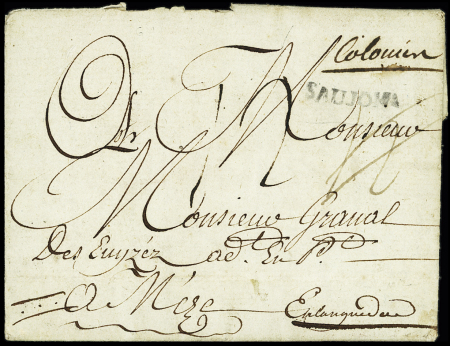 Colonies
SAUJON
A Monsieur
Monsieur Granal
Des Euyzéz ad. En P.d
a Mèze
En languedoc